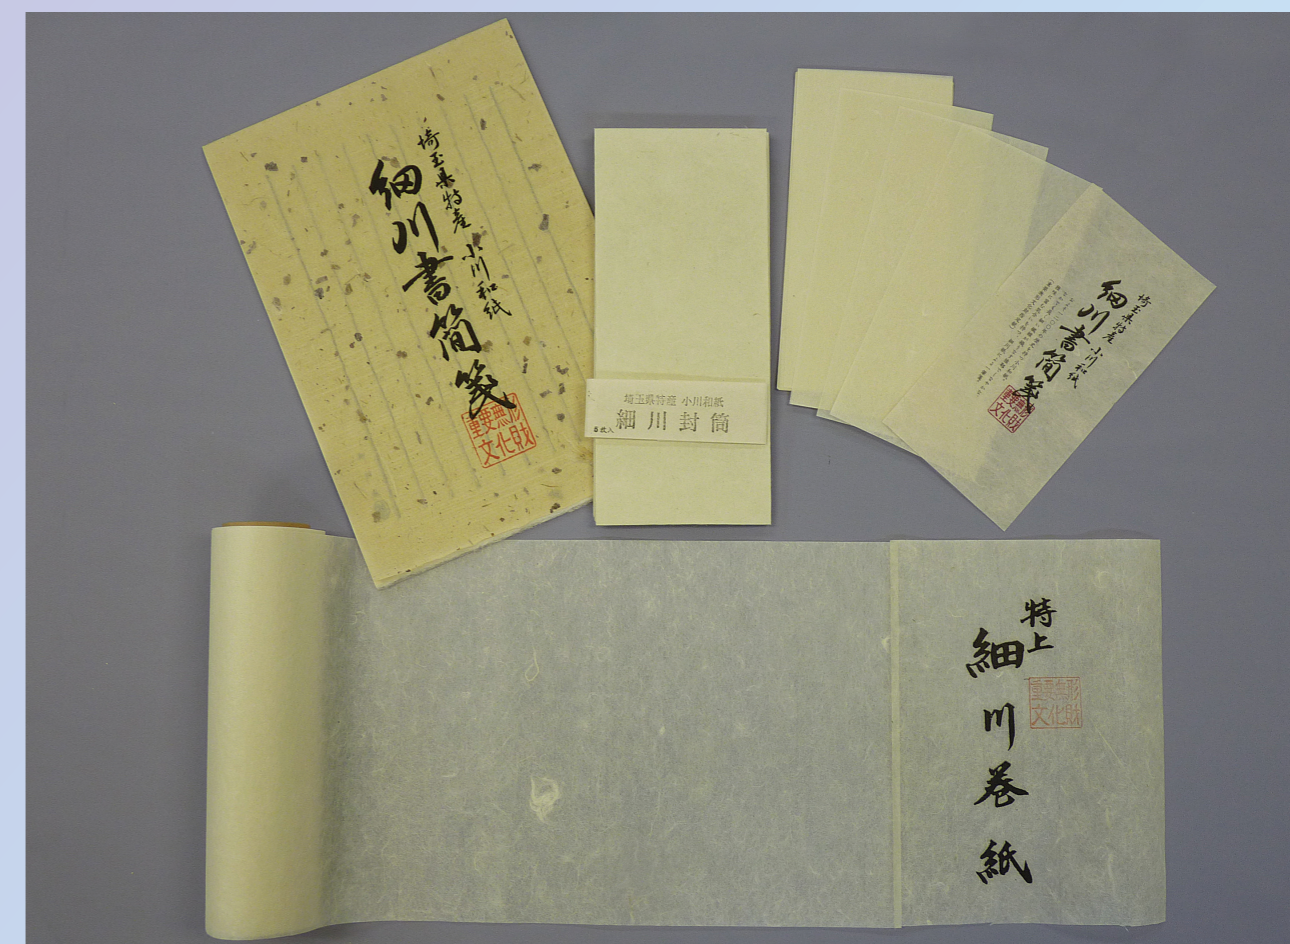 埼玉県特産 小川和紙
細川書簡箋
重要無形
文化財
埼玉県特産 小川和紙
細川封筒
5枚入
埼玉県特産 小川和紙
細川書簡箋
重要無形
文化財
特上
細川巻紙
重要無形
文化財